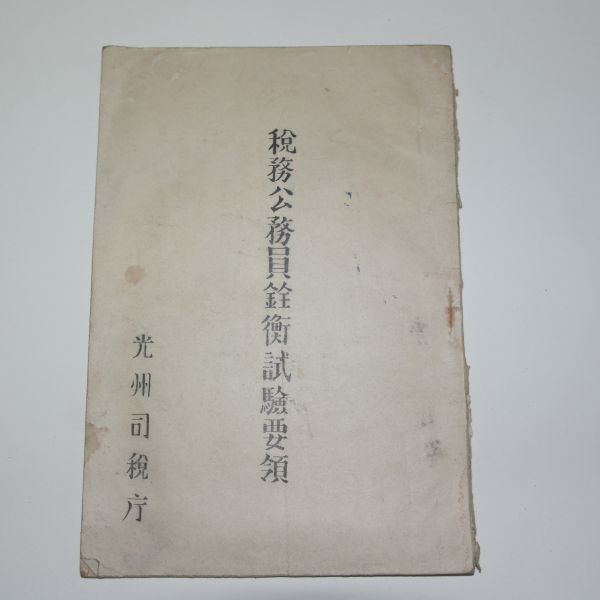 稅務公務員銓衡試驗要領
光州司稅庁